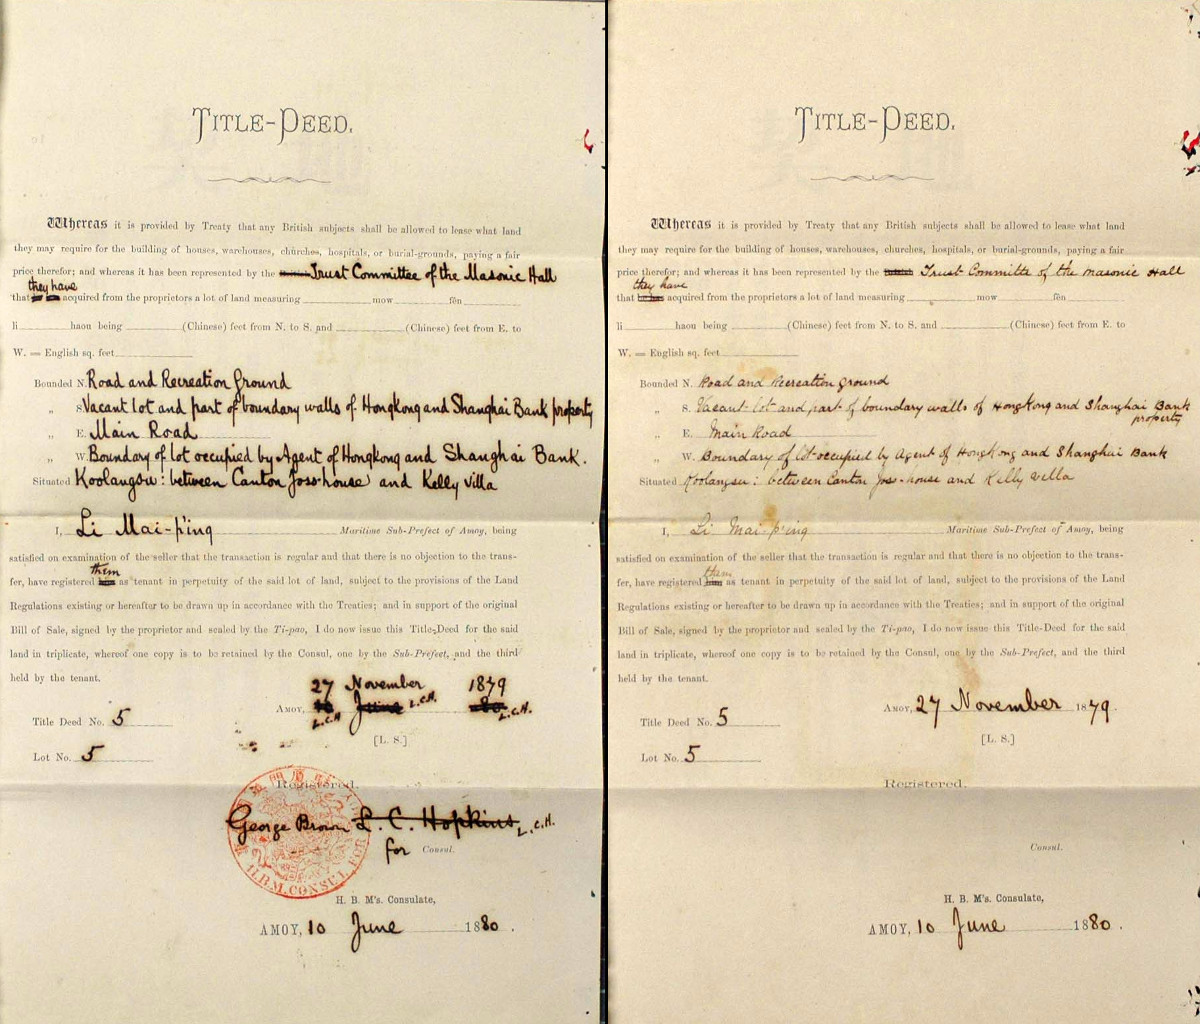 TITLE-DEED.
Whereas it is provided by Treaty that any British subjects shall be allowed to lease what land
they may require for the building of houses, warehouses, churches, hospitals, or burial-grounds, paying a fair
price therefor; and whereas it has been represented by the Trust Committee of the Masonic Hall
they have
that acquired from the proprietors a lot of land measuring mow fēn
li haou being (Chinese) feet from N. to S. and (Chinese) feet from E. to
W. = English sq. feet
Bounded N. Road and Recreation Ground
„ S. Vacant lot and part of boundary walls of Hongkong and Shanghai Bank property
„ E. Main Road
„ W. Boundary of lot occupied by Agent of Hongkong and Shanghai Bank.
Situated Koolangsu: between Canton Joss-house and Kelly villa
I, Li Mai-p'ing Maritime Sub-Prefect of Amoy, being
satisfied on examination of the seller that the transaction is regular and that there is no objection to the trans-
them
fer, have registered him as tenant in perpetuity of the said lot of land, subject to the provisions of the Land
Regulations existing or hereafter to be drawn up in accordance with the Treaties; and in support of the original
Bill of Sale, signed by the proprietor and sealed by the Ti-pao, I do now issue this Title-Deed for the said
land in triplicate, whereof one copy is to be retained by the Consul, one by the Sub-Prefect, and the third
held by the tenant.
27 November 1879
Amoy, 10 June L.C.H. 180
L.C.H L.C.H.
Title Deed No. 5
[L. S.]
Lot No. 5
Registered.
George Brown L. C. Hopkins L.C.H.
for Consul.
H.B.M. CONSUL FOR
H. B. M's. Consulate,
AMOY, 10 June 1880.
TITLE-DEED.
Whereas it is provided by Treaty that any British subjects shall be allowed to lease what land
they may require for the building of houses, warehouses, churches, hospitals, or burial-grounds, paying a fair
price therefor; and whereas it has been represented by the Trust Committe of the Masonic Hall
they have
that he has acquired from the proprietors a lot of land measuring mow fēn
li haou being (Chinese) feet from N. to S. and (Chinese) feet from E. to
W. = English sq. feet
Bounded N. Road and Recreation ground
„ S. Vacant lot and part of boundary walls of Hongkong and Shanghai Bank
property
„ E. Main Road
„ W. Boundary of lot occupied by Agent of Hongkong and Shanghai Bank
Situated Koolangsu: between Canton Joss-house and Kelly villa
I, Li Mai-p'ing Maritime Sub-Prefect of Amoy, being
satisfied on examination of the seller that the transaction is regular and that there is no objection to the trans-
them
fer, have registered him as tenant in perpetuity of the said lot of land, subject to the provisions of the Land
Regulations existing or hereafter to be drawn up in accordance with the Treaties; and in support of the original
Bill of Sale, signed by the proprietor and sealed by the Ti-pao, I do now issue this Title-Deed for the said
land in triplicate, whereof one copy is to be retained by the Consul, one by the Sub-Prefect, and the third
held by the tenant.
Amoy, 27 November 1879.
Title Deed No. 5
[L. S.]
Lot No. 5
Registered.
Consul.
H. B. M's. Consulate,
AMOY, 10 June 1880.